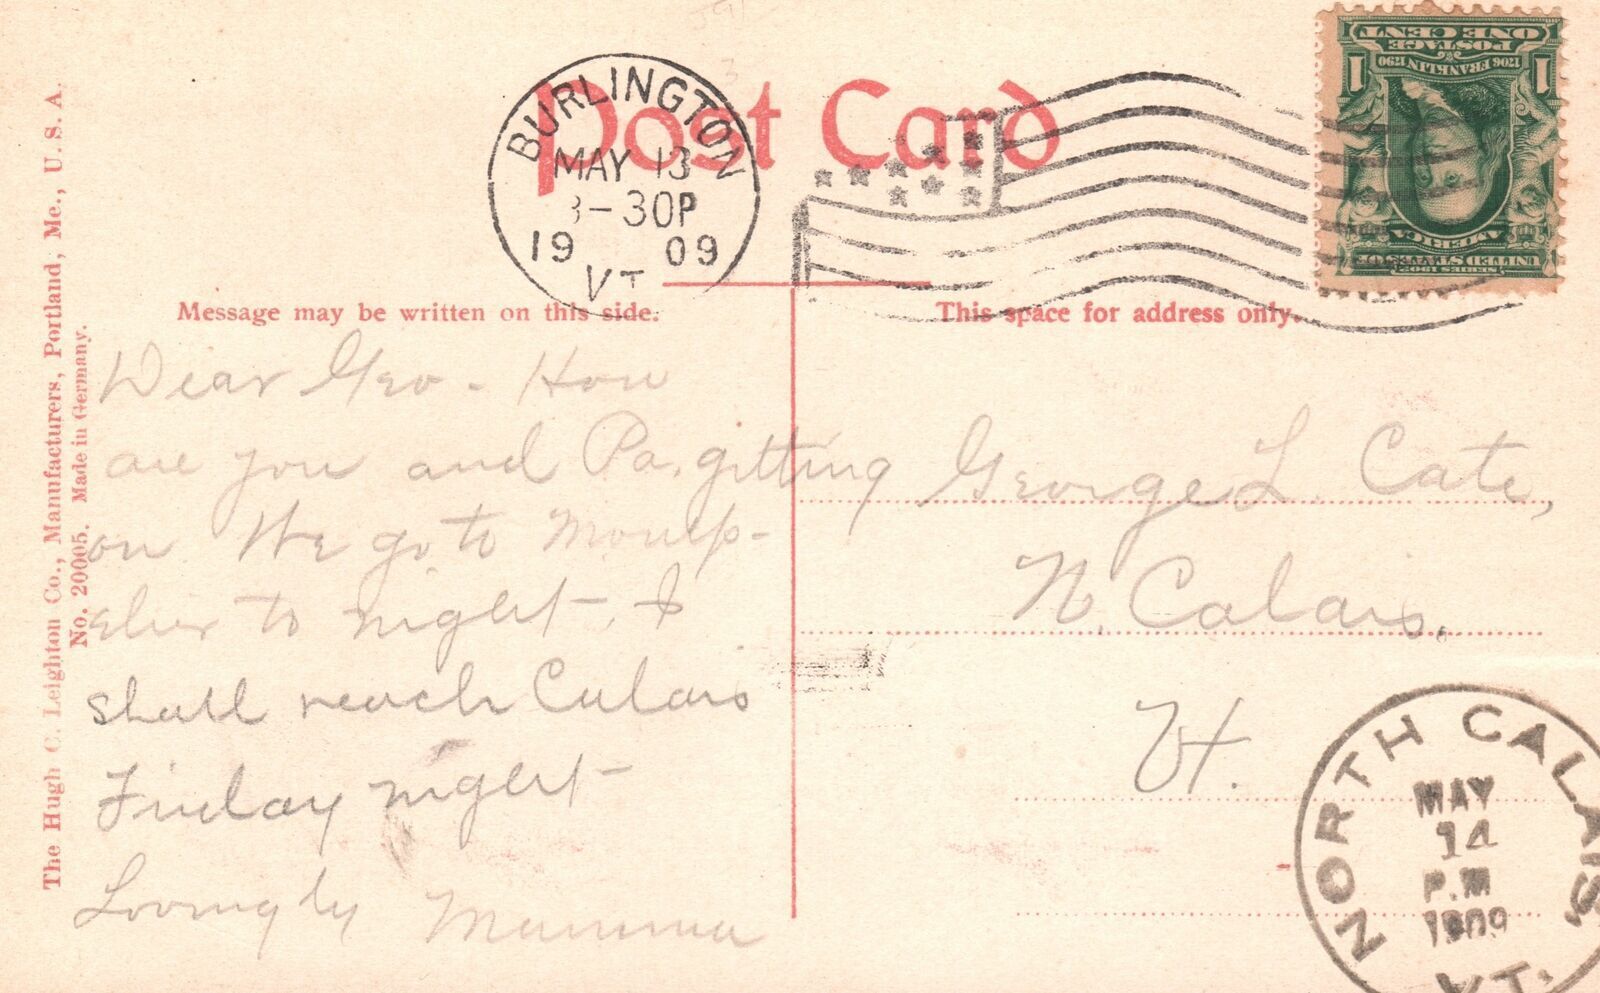 Post Card
BURLINGTON
MAY 13
3-30P
19 09
VT
ONE CENT
POSTAGE
1706 FRANKLIN 1790
1 1
UNITED STATES OF
AMERICA
SERIES 1902
The Hugh C. Leighton Co., Manufacturers, Portland, Me., U. S. A.
No. 20005. Made in Germany.
Message may be written on this side.
Dear Geo - How
are you and Pa. gitting
on We go to Montp-
elier to night. I
shall reach Calais
Friday night
Lovingly Mamma
This space for address only.
George L. Cate,
N. Calais.
Vt.
NORTH CALAIS,
MAY
14
P.M
1909
VT.